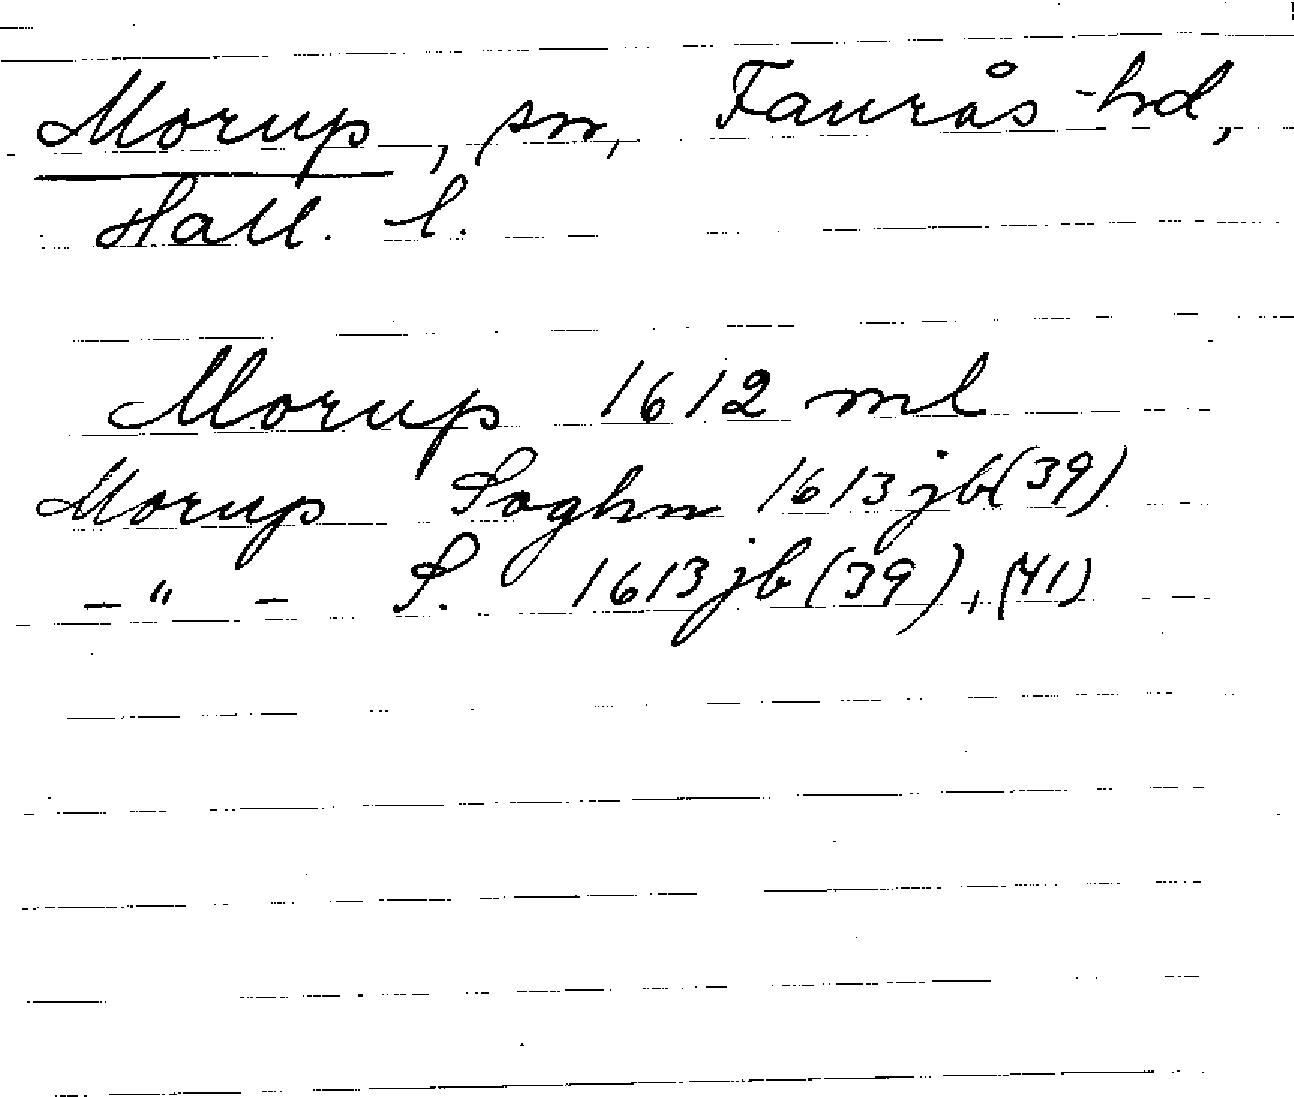 Morup, sn, Faurås hd,
Hall. l.
Morup 1612 ml
Morup Soghn 1613 jb(39)
-"- S. 1613 jb (39), (41)